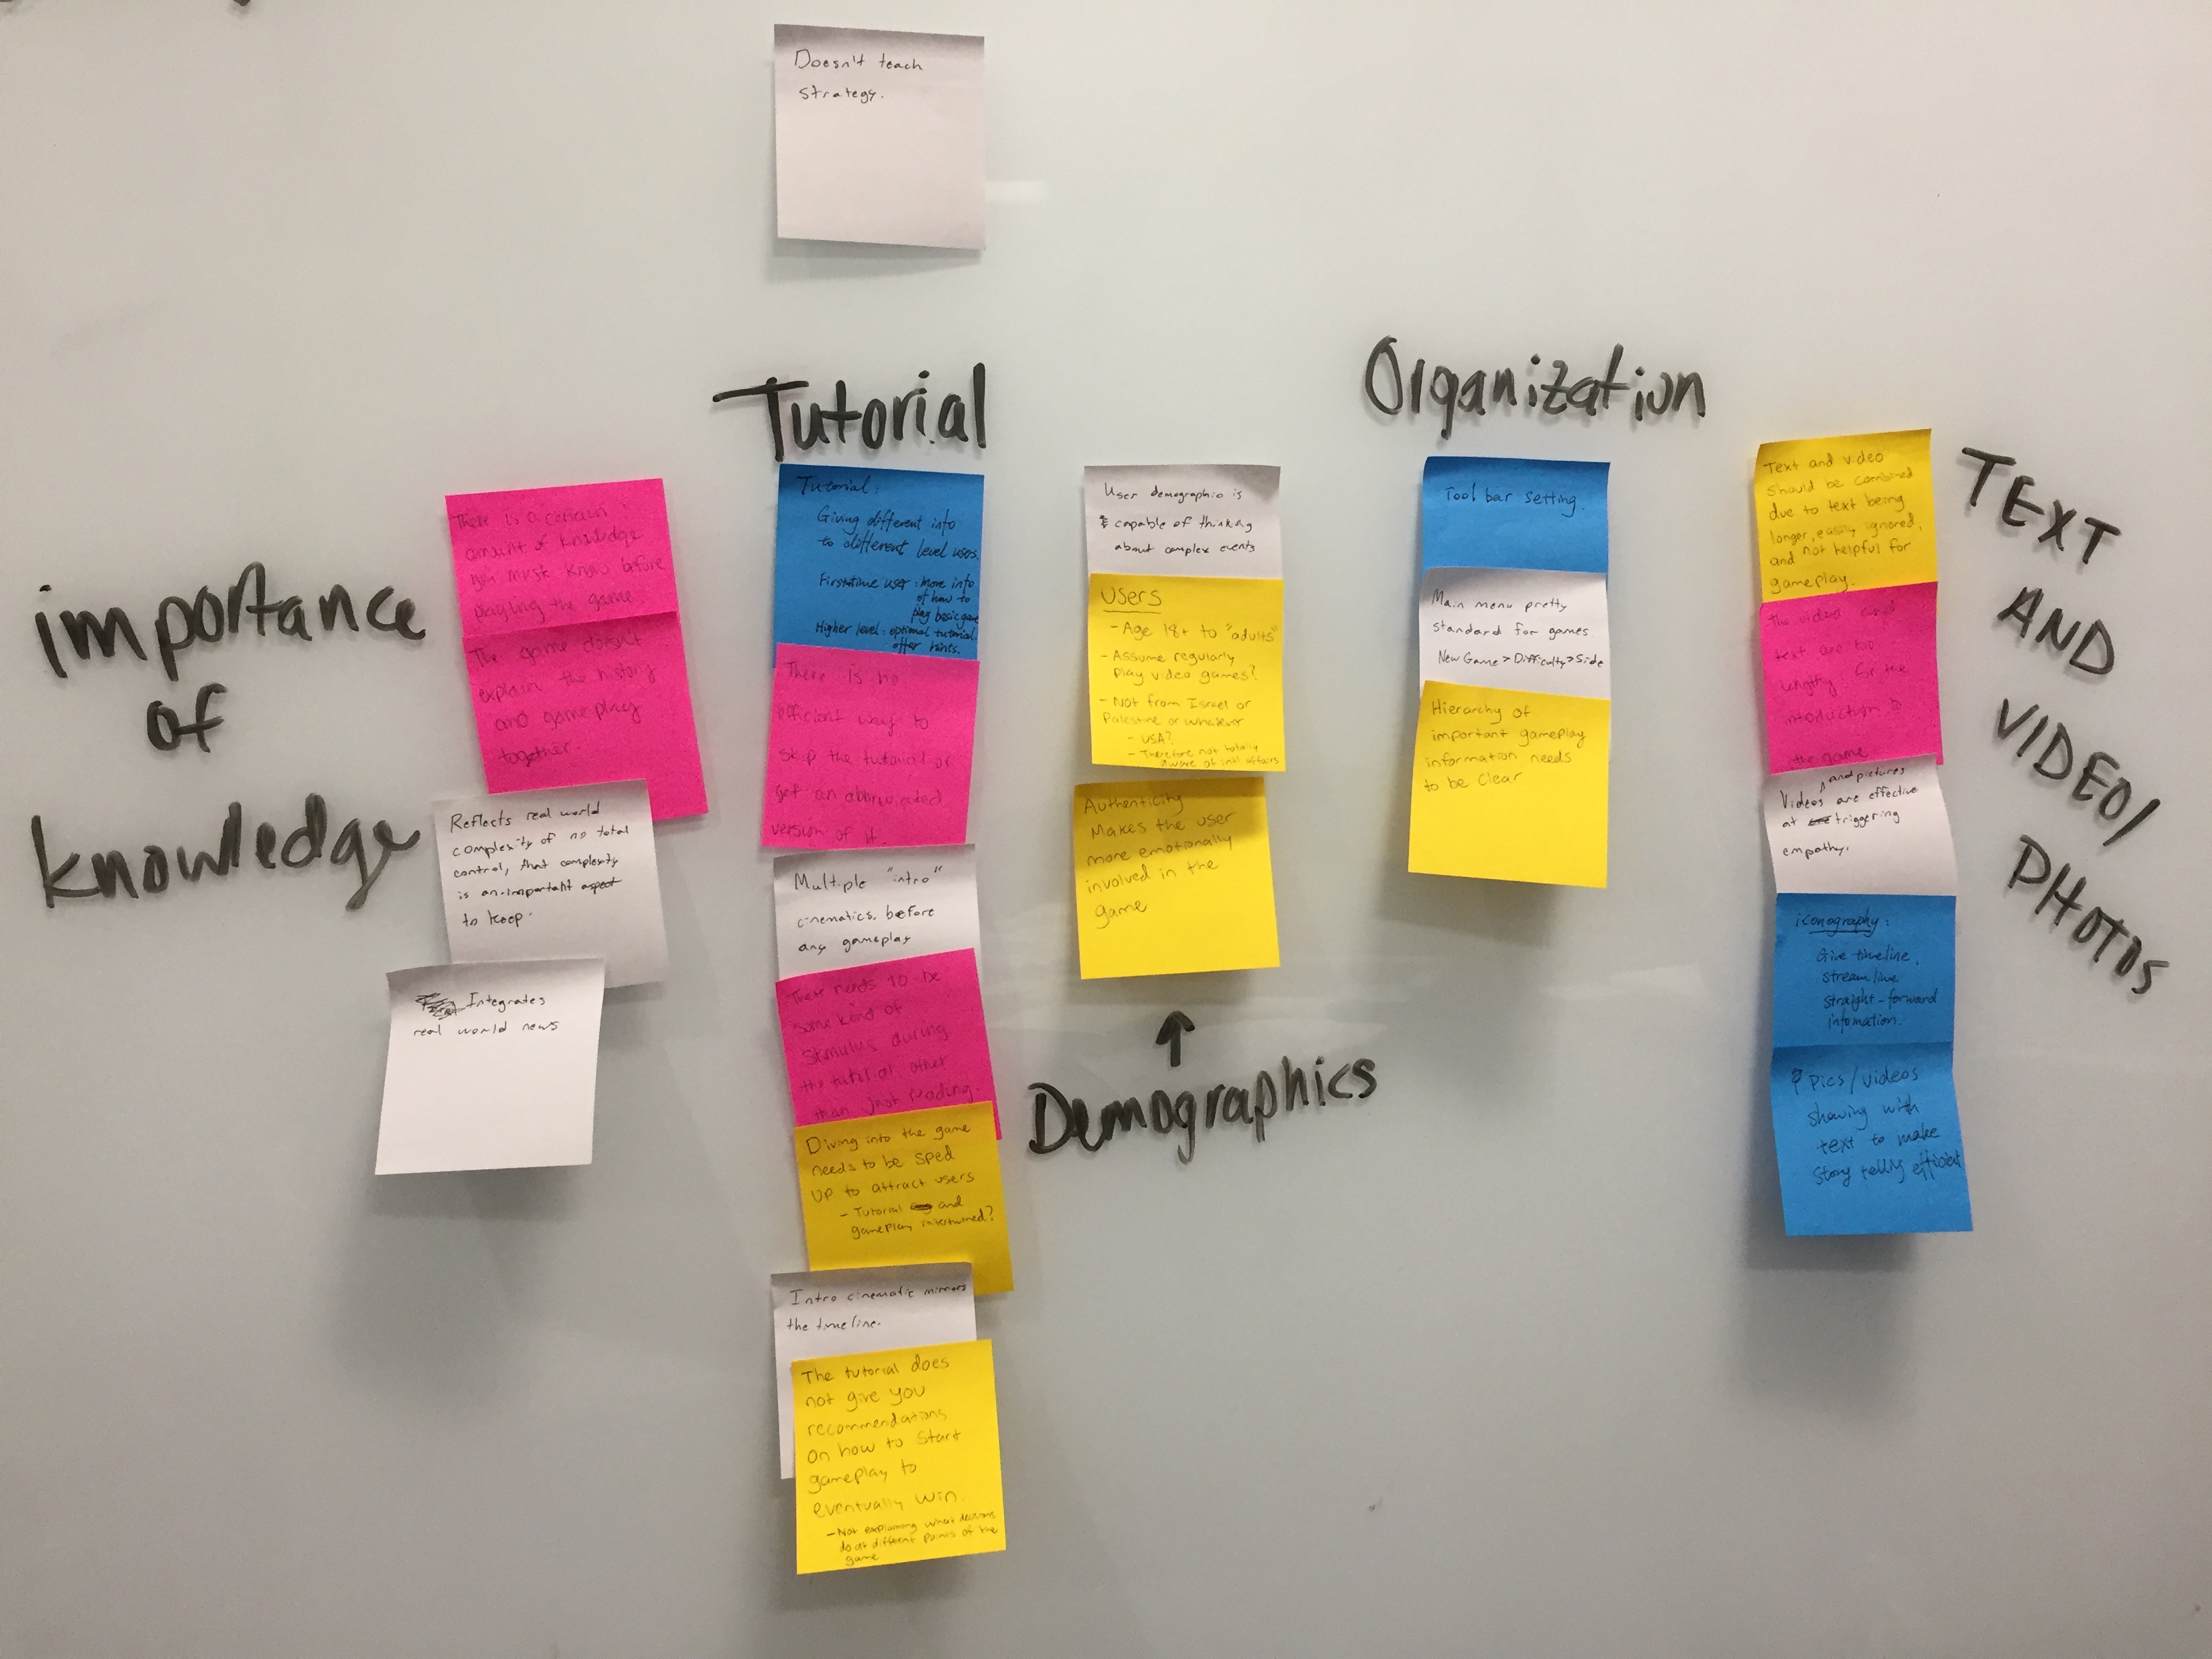 Doesn't teach
strategy.
importance
of
knowledge
There is a certain
amount of knowledge
you must know before
playing the game.
The game doesn't
explain the history
and gameplay
together.
Reflects real world
complexity of no total
control, that complexity
is an important aspect
to keep.
Integrates
real world news
Tutorial
Tutorial:
Giving different info
to different level users.
First time user: more info
of how to
play basic game
Higher level: optimal tutorial.
offer hints.
There is no
efficient way to
skip the tutorial or
get an abbreviated
version of it.
Multiple "intro"
cinematics before
any gameplay
There needs to be
some kind of
stimulus during
the tutorial other
than just reading.
Diving into the game
needs to be sped
up to attract users
- Tutorial and
gameplay intertwined?
Intro cinematic mirrors
the timeline.
The tutorial does
not give you
recommendations
on how to start
gameplay to
eventually win.
- Not explaining what decisions
do at different points of the
game
User demographic is
capable of thinking
about complex events
USERS
- Age 18+ to "adults"
- Assume regularly
play video games?
- Not from Israel or
Palestine or whatever
- USA?
- Therefore not totally
aware of intl affairs
Authenticity
Makes the user
more emotionally
involved in the
game
↑
Demographics
Organization
Tool bar setting.
Main menu pretty
standard for games
New Game > Difficulty > Side
Hierarchy of
important gameplay
information needs
to be clear
Text and video
should be combined
due to text being
longer, easily ignored,
and not helpful for
gameplay.
the video and
text are too
lengthy for the
introduction to
the game
and pictures
Videos are effective
at triggering
empathy.
iconography:
Give timeline,
streamline
straight-forward
infomation.
Pics/videos
showing with
text to make
story telling efficient
TEXT
AND
VIDEO/
PHOTOS